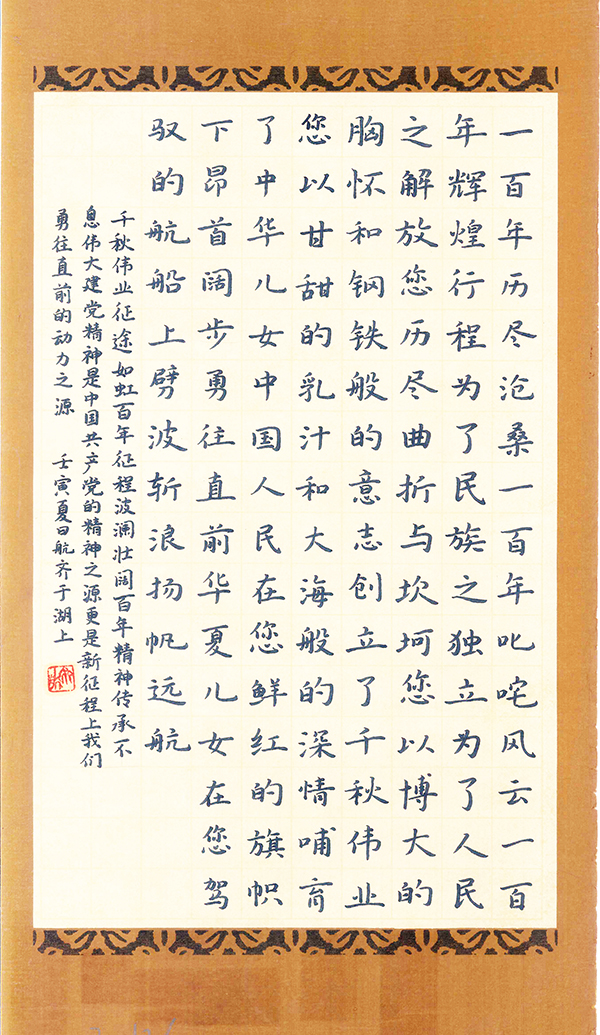 一百年历尽沧桑一百年叱咤风云一百
年辉煌行程为了民族之独立为了人民
之解放您历尽曲折与坎坷您以博大的
胸怀和钢铁般的意志创立了千秋伟业
您以甘甜的乳汁和大海般的深情哺育
了中华儿女中国人民在您鲜红的旗帜
下昂首阔步勇往直前华夏儿女在您驾
驭的航船上劈波斩浪扬帆远航
千秋伟业征途如虹百年征程波澜壮阔百年精神传承不
息伟大建党精神是中国共产党的精神之源更是新征程上我们
勇往直前的动力之源 壬寅夏日航齐于湖上